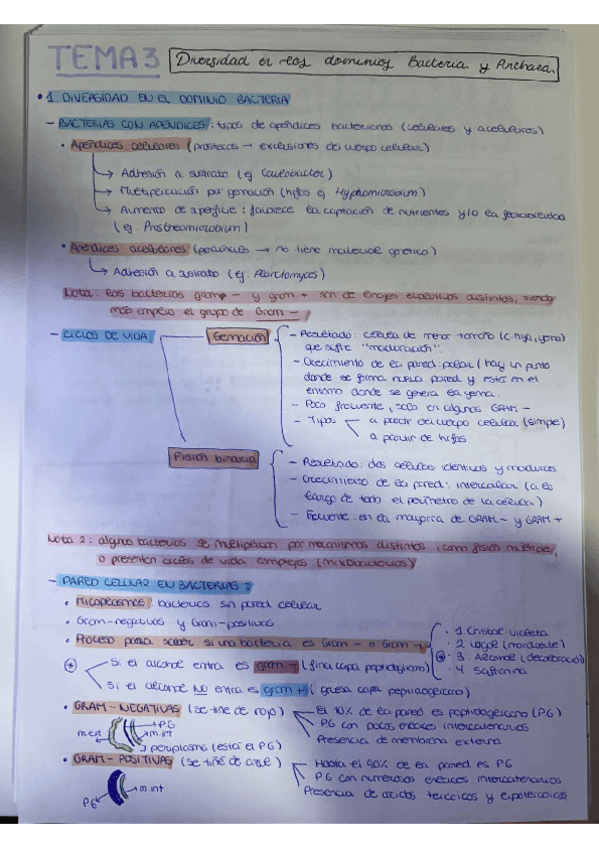 TEMA 3 Diversidad en los dominios Bacteria y Archaea.
• 1. DIVERSIDAD EN EL DOMINIO BACTERIA
- BACTERIAS CON APÉNDICES: tipos de apéndices bacterianos (celulares y acelulares)
• Apéndices celulares (prostecas → excrusiones del cuerpo celular)
→ Adhesión a sustrato (ej. Caulobacter)
→ Multiplicación por gemación (hifas ej. Hyphomicrobium)
→ Aumento de superficie: favorece la captación de nutrientes y/o la flotabilidad
(ej. Prosthecomicrobium)
• Apéndices acelulares (pedúnculos → no tiene material genético)
→ Adhesión a sustrato (ej. Planctomyces)
Nota: las bacterias gram - y gram + son de linajes evolutivos distintos, siendo
más amplio el grupo de Gram -
- CICLOS DE VIDA
Gemación
- Resultado: célula de menor tamaño (c. hija, yema)
que sufre "maduración".
- Crecimiento de la pared: polar (hay un punto
donde se forma nueva pared y está en el
entorno donde se genera la yema.
- Poco frecuente, solo en algunos GRAM -
- Tipos a partir del cuerpo celular (simple)
a partir de hifas
Fisión binaria
- Resultado: dos células idénticas y maduras
- Crecimiento de la pared: intercalar (a lo
largo de todo el perímetro de la célula)
- Frecuente: en la mayoría de GRAM - y GRAM +
Nota 2: algunas bacterias se multiplican por mecanismos distintos, como fisión múltiple,
o presentan ciclos de vida complejos (mixobacterias).
- PARED CELULAR EN BACTERIAS:
• Micoplasmas: bacterias sin pared celular
• Gram-negativas y Gram-positivas
• Proceso para saber si una bacteria es Gram - o Gram +
• 1. Cristal violeta
• 2. Lugol (mordiente)
* 3. Alcohol (decoloración)
• 4. Safranina
* Si el alcohol entra es gram - (fina capa peptidoglicano)
Si el alcohol NO entra es gram + (gruesa capa peptidoglicano)
• GRAM - NEGATIVAS (se tiñe de rojo)
El 10% de la pared es peptidoglicano (PG)
PG con pocos enlaces intercatenarios
Presencia de membrana externa
m.ext
PG
m.int
periplasma (está el PG)
• GRAM - POSITIVAS (se tiñe de azul)
Hasta el 90% de la pared es PG
PG con numerosos enlaces intercatenarios
Presencia de ácidos teicoicos y lipoteicoicos
PG
m.int